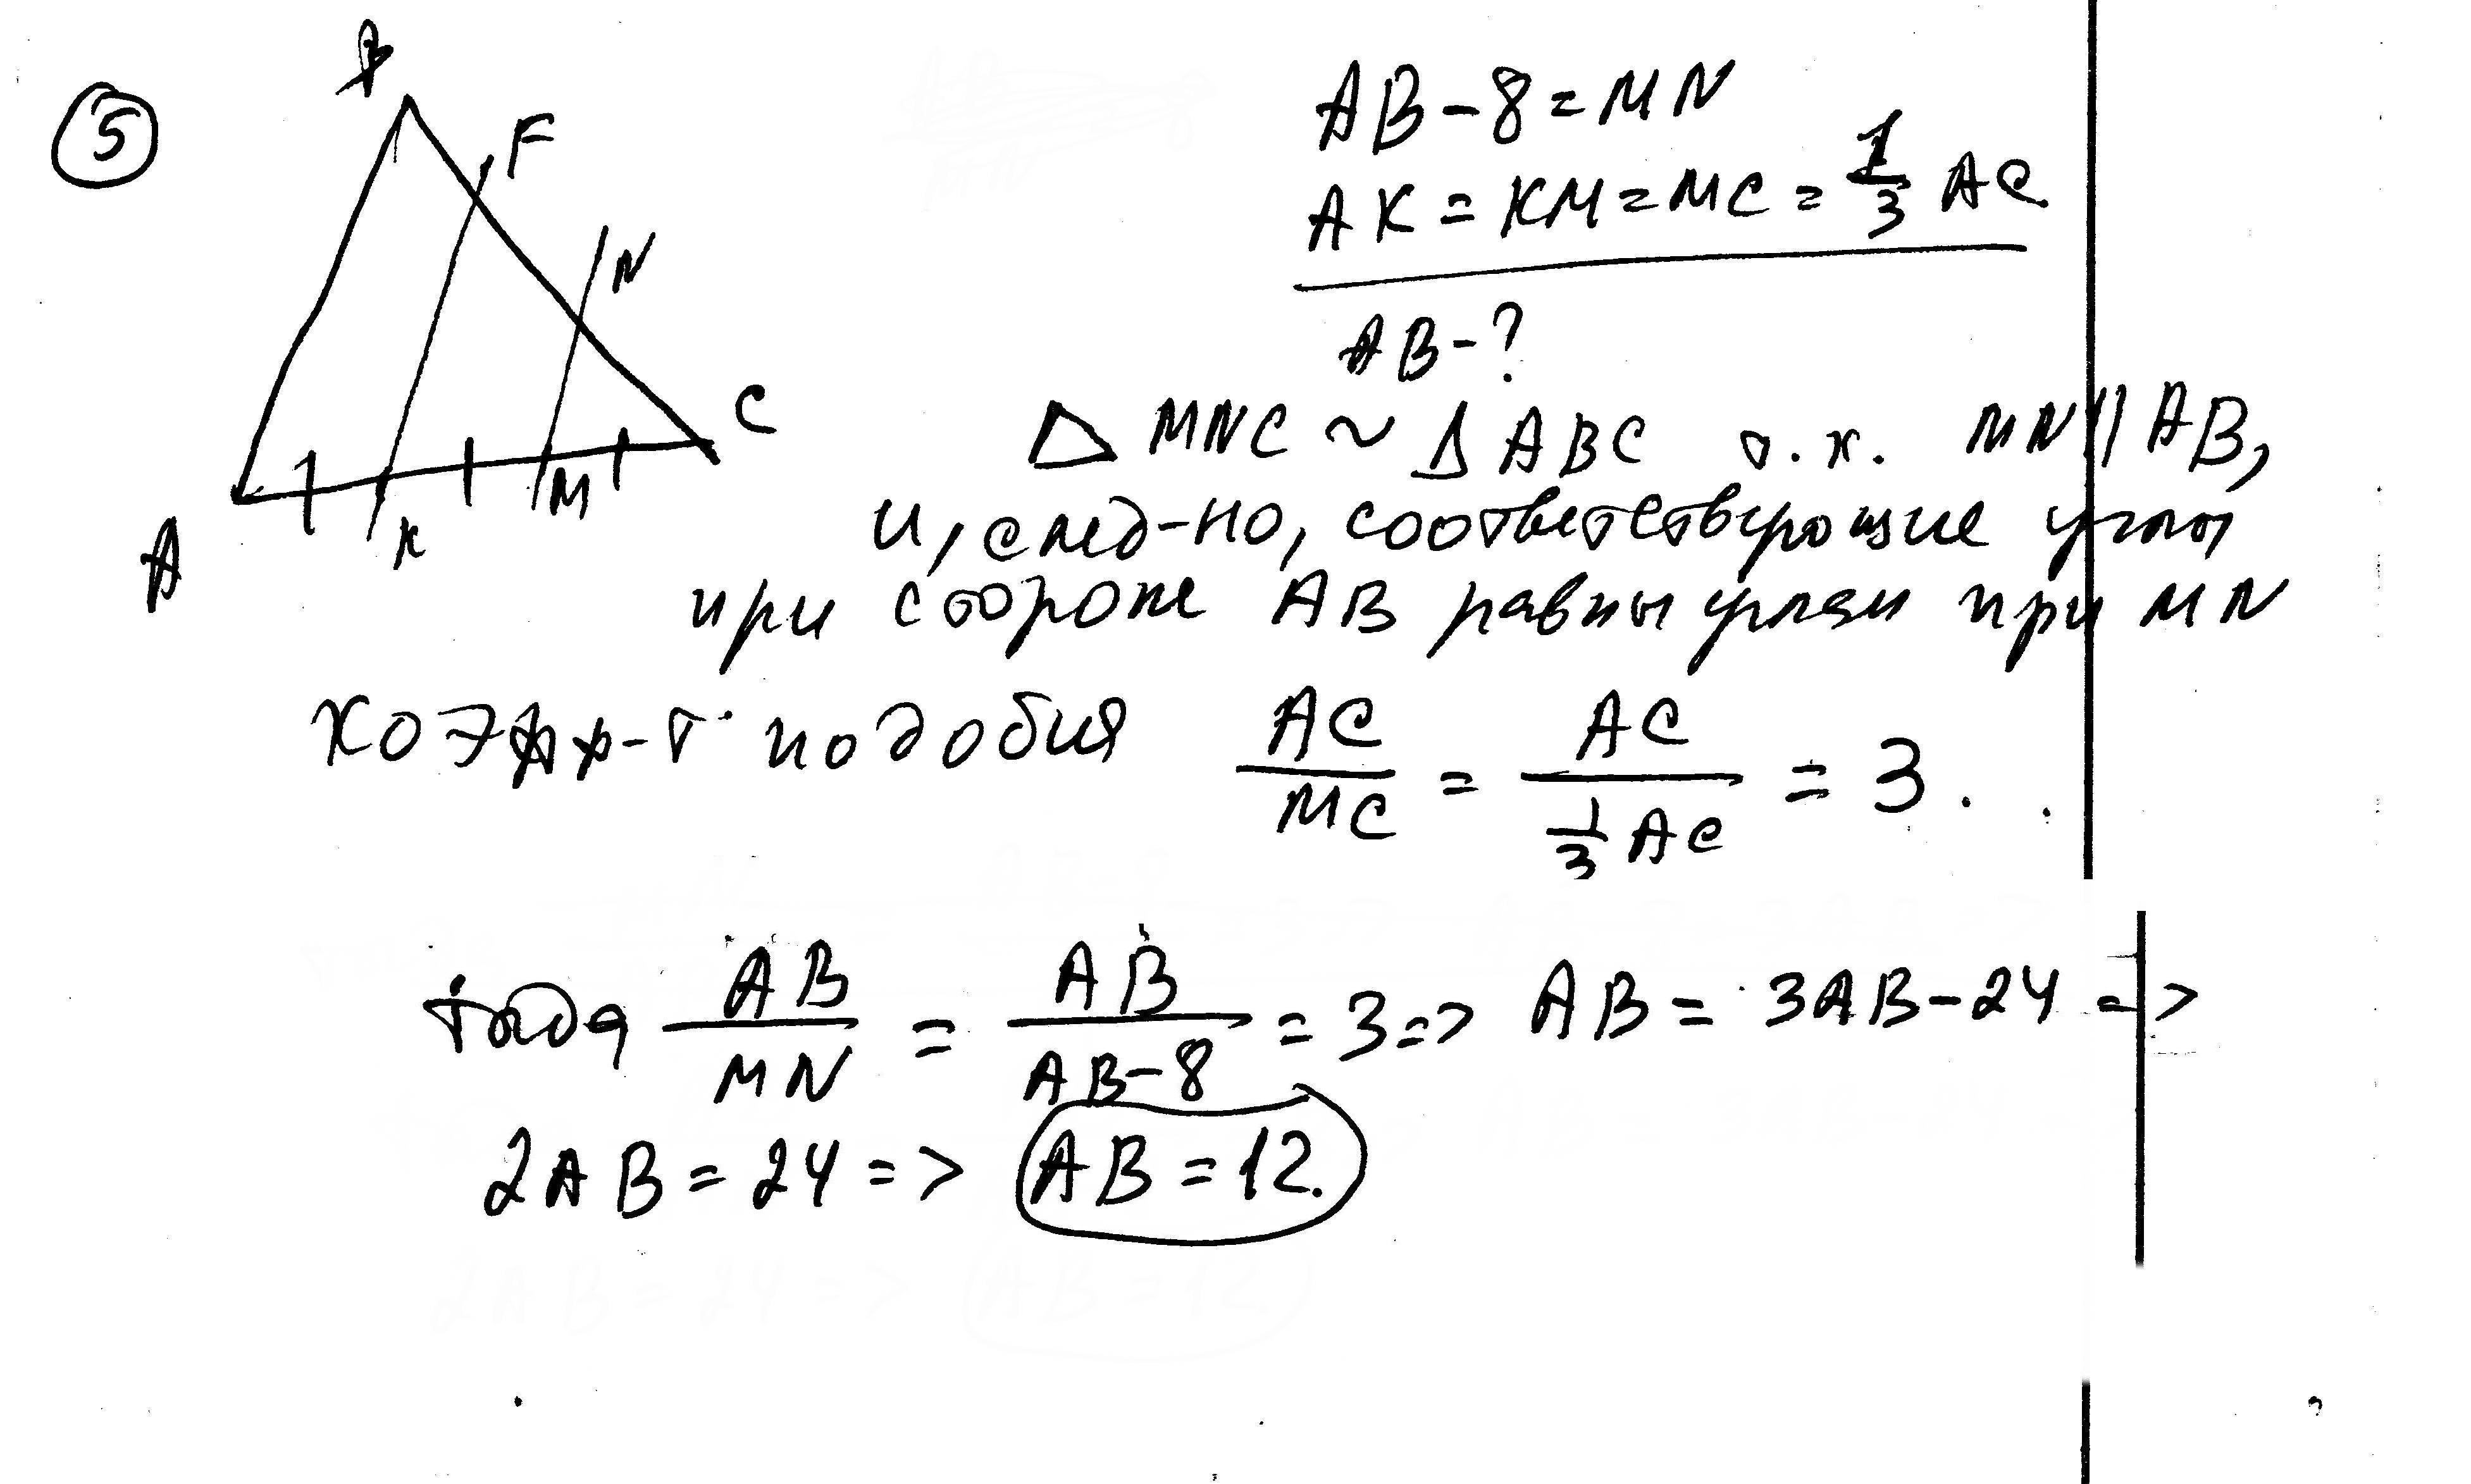 5
B
F
N
C
A
K
M
AB-8=MN
AK=KM=MC=1/3 AC
AB-?
△MNC ~ △ABC т.к. MN||AB,
и, след-но, соответствующие углы
при стороне AB равны углам при MN
коэфф-т подобия AC/MC = AC/(1/3 AC) = 3.
тогда AB/MN = AB/(AB-8) = 3 => AB = 3AB-24 =>
2AB=24 => AB=12.